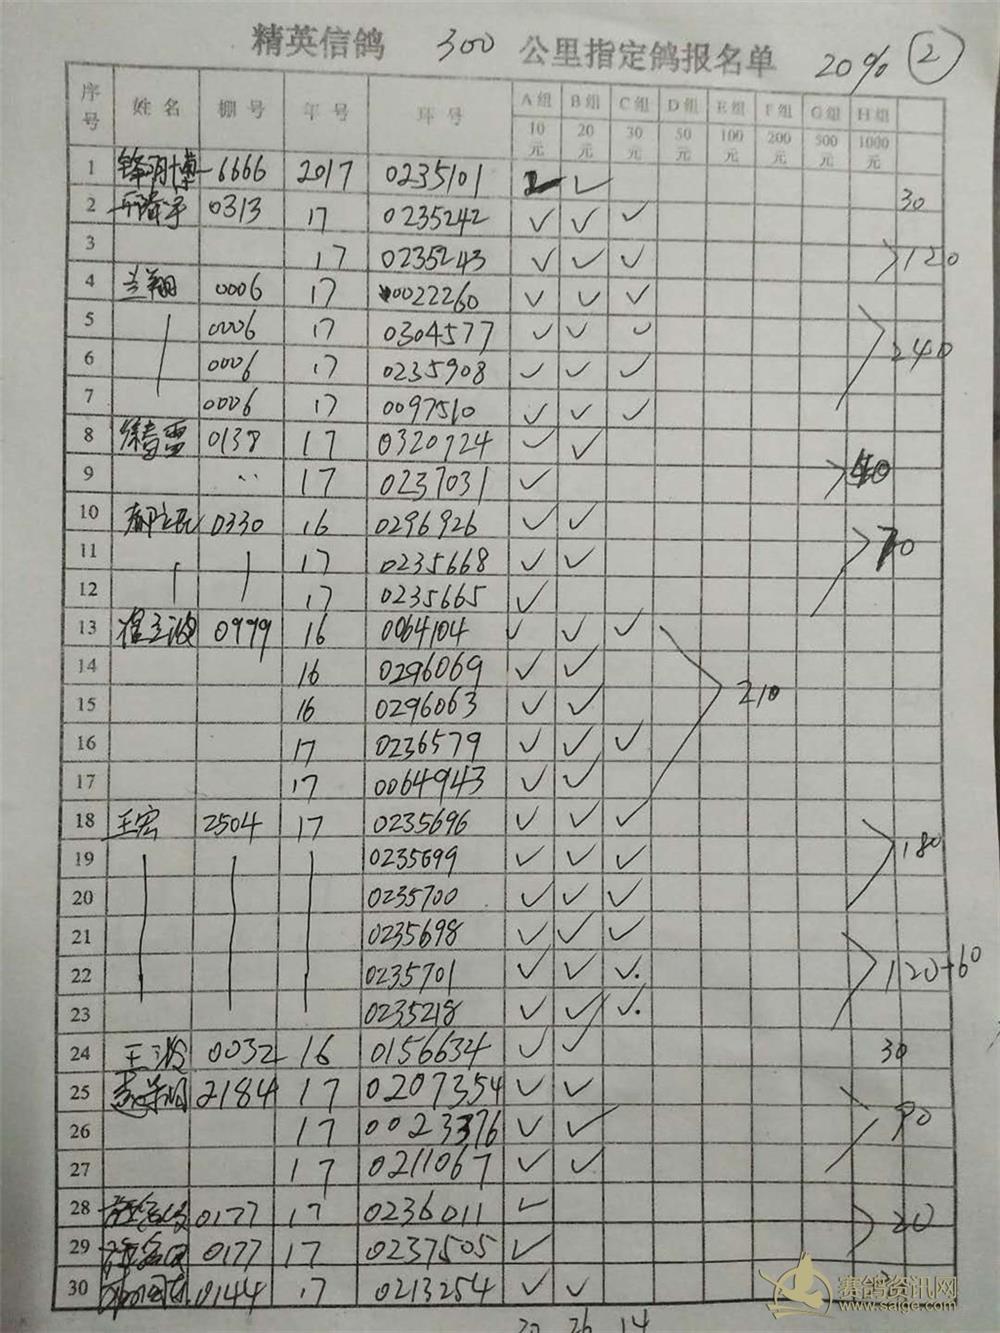 精英信鸽 300 公里指定鸽报名单 20% ②
序号 姓名 棚号 年号 环号 A组 B组 C组 D组 E组 F组 G组 H组
10元 20元 30元 50元 100元 200元 500元 1000元
1 6666 2017 0235101 ✓ ✓ 30
2 0313 17 0235242 ✓ ✓ ✓
3 17 0235243 ✓ ✓ ✓ 120
4 兰翔 0006 17 0022260 ✓ ✓ ✓
5 0006 17 0304577 ✓ ✓ ✓ 240
6 0006 17 0235908 ✓ ✓ ✓
7 0006 17 0097510 ✓ ✓ ✓
8 0138 17 0320724 ✓ ✓
9 17 0237031 ✓ 40
10 0330 16 0296926 ✓ ✓
11 17 0235668 ✓ ✓ 70
12 17 0235665 ✓
13 0999 16 0064104 ✓ ✓ ✓
14 16 0296069 ✓ ✓
15 16 0296063 ✓ ✓ 210
16 17 0236579 ✓ ✓ ✓
17 17 0064943 ✓ ✓
18 王宏 2504 17 0235696 ✓ ✓ ✓
19 0235699 ✓ ✓ ✓ 180
20 0235700 ✓ ✓ ✓
21 0235698 ✓ ✓ ✓
22 0235701 ✓ ✓ ✓ 120+60
23 0235218 ✓ ✓ ✓
24 王波 0032 16 0156634 ✓ ✓ 30
25 2184 17 0207354 ✓ ✓
26 17 0023376 ✓ ✓ 90
27 17 0211067 ✓ ✓
28 0177 17 0236011 ✓ 20
29 0177 17 0237505 ✓
30 0144 17 0213254 ✓ ✓
30 26 14
赛鸽资讯网
www.saige.com